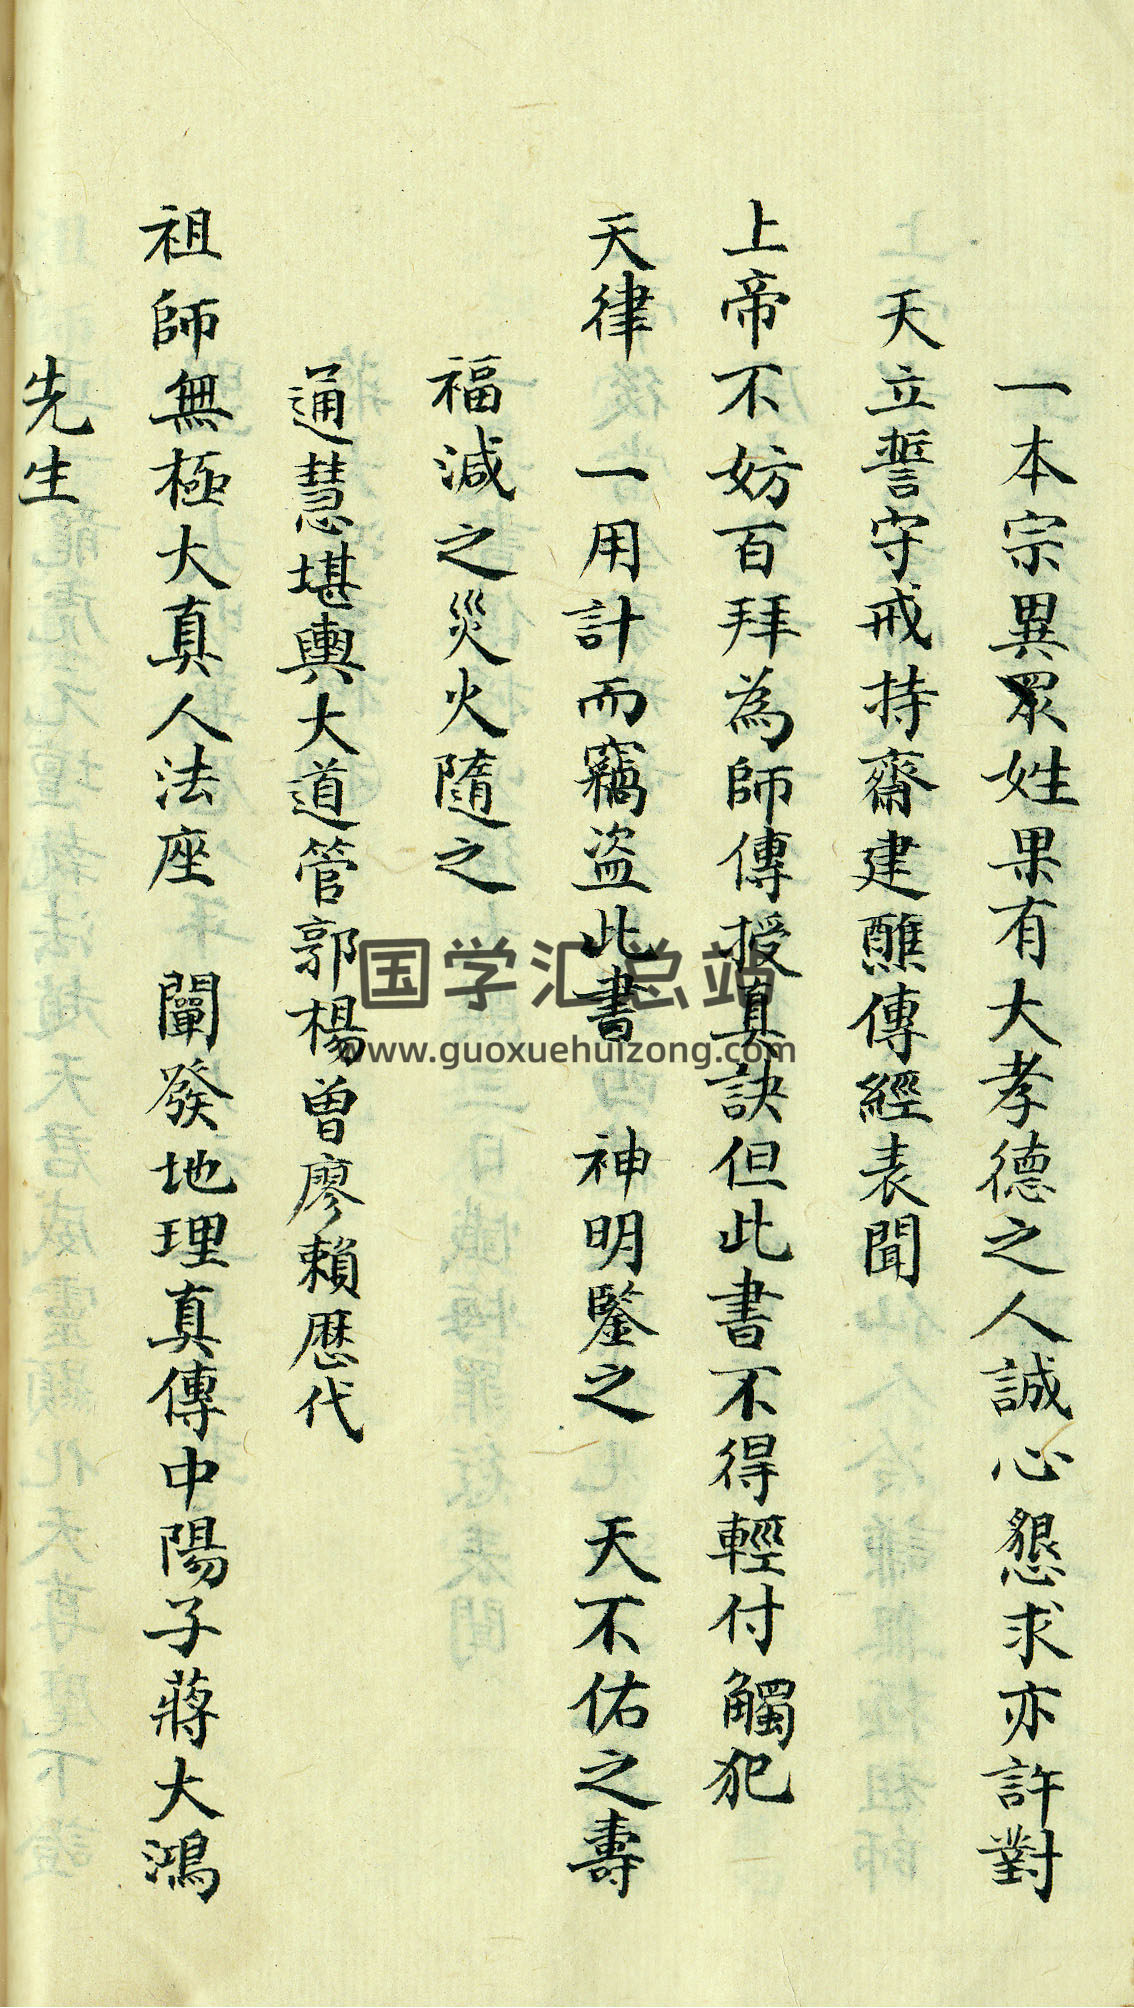 一本宗異眾姓果有大孝德之人誠心懇求亦許對
天立誓守戒持齋建醮傳經表聞
上帝不妨百拜為師傳授真訣但此書不得輕付觸犯
天律一用計而竊盜此書 神明鑒之 天不佑之壽
福減之災火隨之
通慧堪輿大道管郭楊曾廖賴歷代
祖師無極大真人法座 闡發地理真傳中陽子蔣大鴻
先生
国学汇总站
www.guoxuehuizong.com